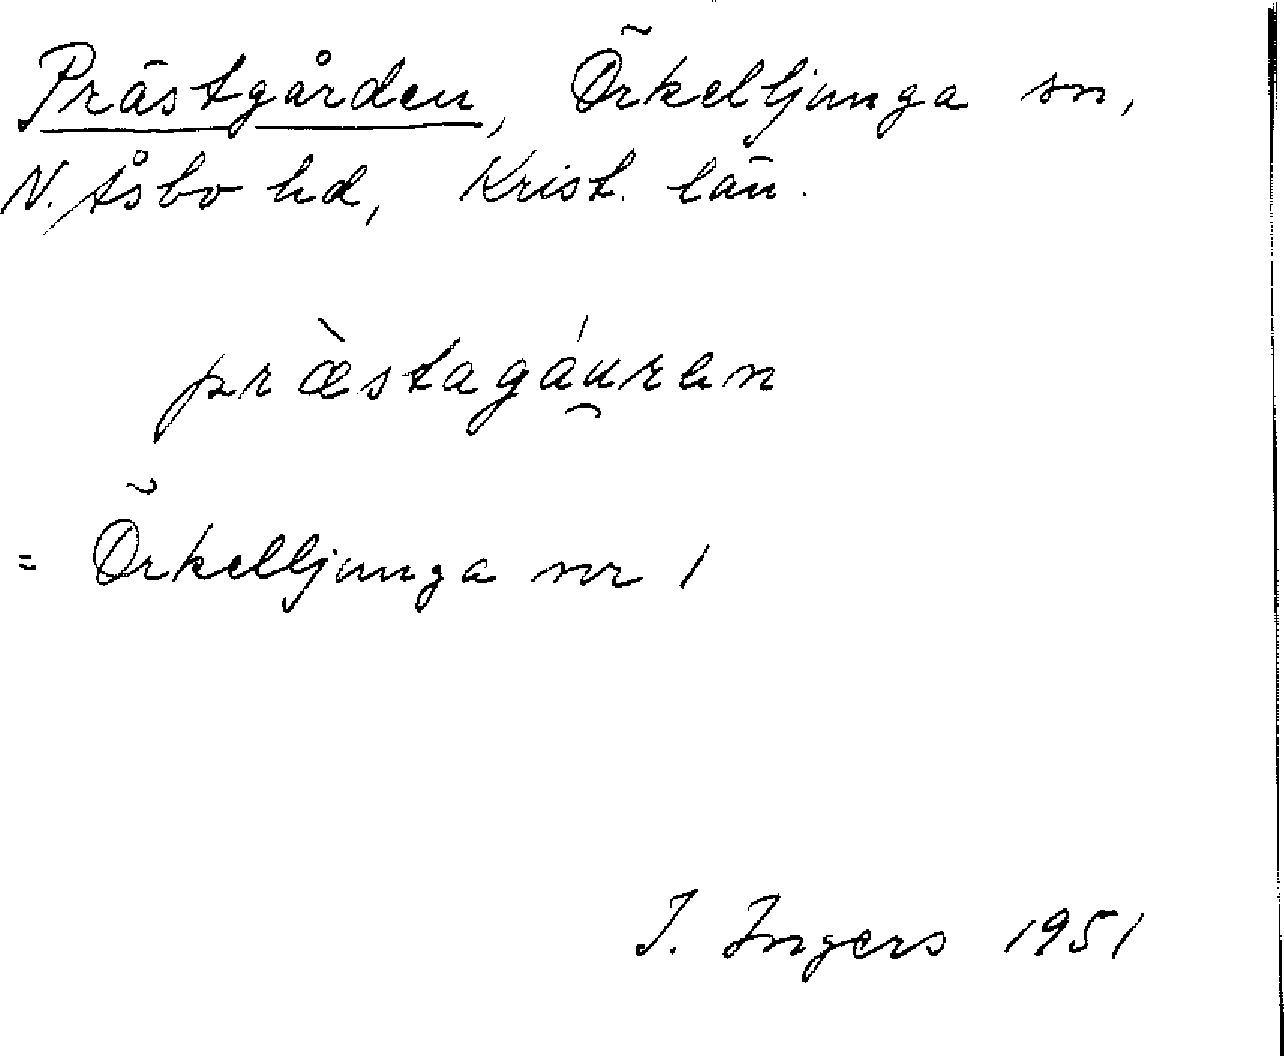 Prästgården, Örkelljunga sn,
N. Åsbo hd, Krist. län.
præ̀stagáu̯ren
= Örkelljunga nr 1
I. Ingers 1951